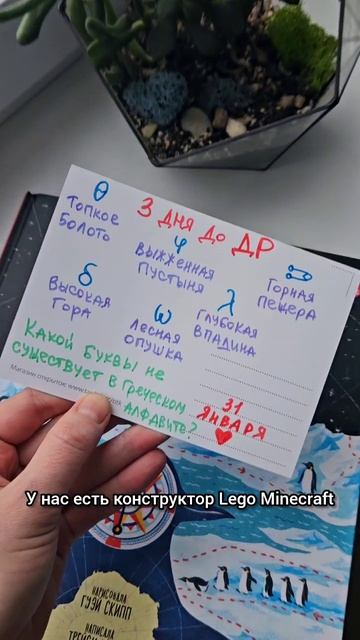 3 ДНЯ ДО ДР
θ
ТОПКОЕ
БОЛОТО
φ
ВЫЖЖЕННАЯ
ПУСТЫНЯ
ГОРНАЯ
ПЕЩЕРА
б
ВЫСОКАЯ
ГОРА
ω
ЛЕСНАЯ
ОПУШКА
λ
ГЛУБОКАЯ
ВПАДИНА
КАКОЙ БУКВЫ НЕ
СУЩЕСТВУЕТ В ГРЕЧЕСКОМ
АЛФАВИТЕ?
31
ЯНВАРЯ
Магазин открыток
У нас есть конструктор Lego Minecraft
НАРИСОВАЛА
ГУЭН СКИПП
НАПИСАЛА